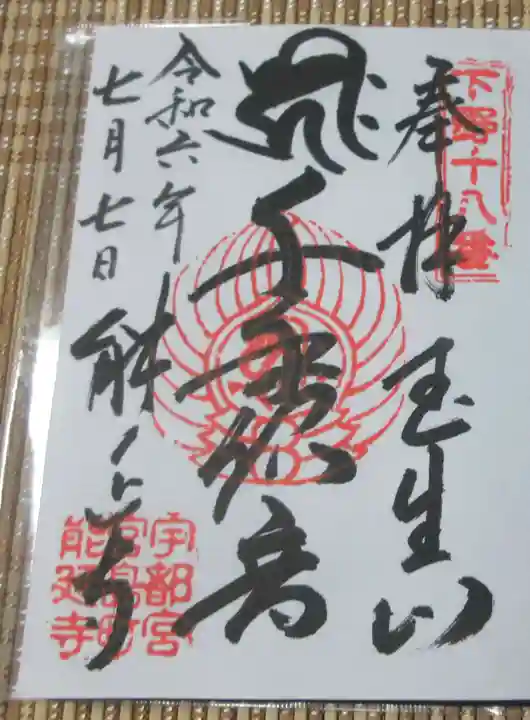 下野十八番
奉拝 玉生山
千手観音
能延寺
令和六年
七月七日
宇都宮
宮島町
能延寺